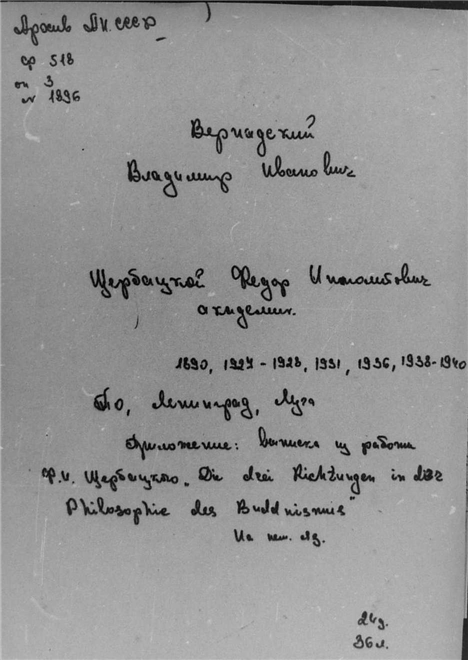 Архив АН СССР
ф 518
оп 3
№ 1896
Вернадский
Владимир Иванович
Щербацкой Федор Ипполитович
академик.
1890, 1927-1928, 1931, 1936, 1938-1940
Ленинград, Луга
Приложение: выписка из работы
Ф.И. Щербацкого „Die drei Richtungen in der
Philosophie des Buddhismus"
На нем. яз.
24д.
36л.